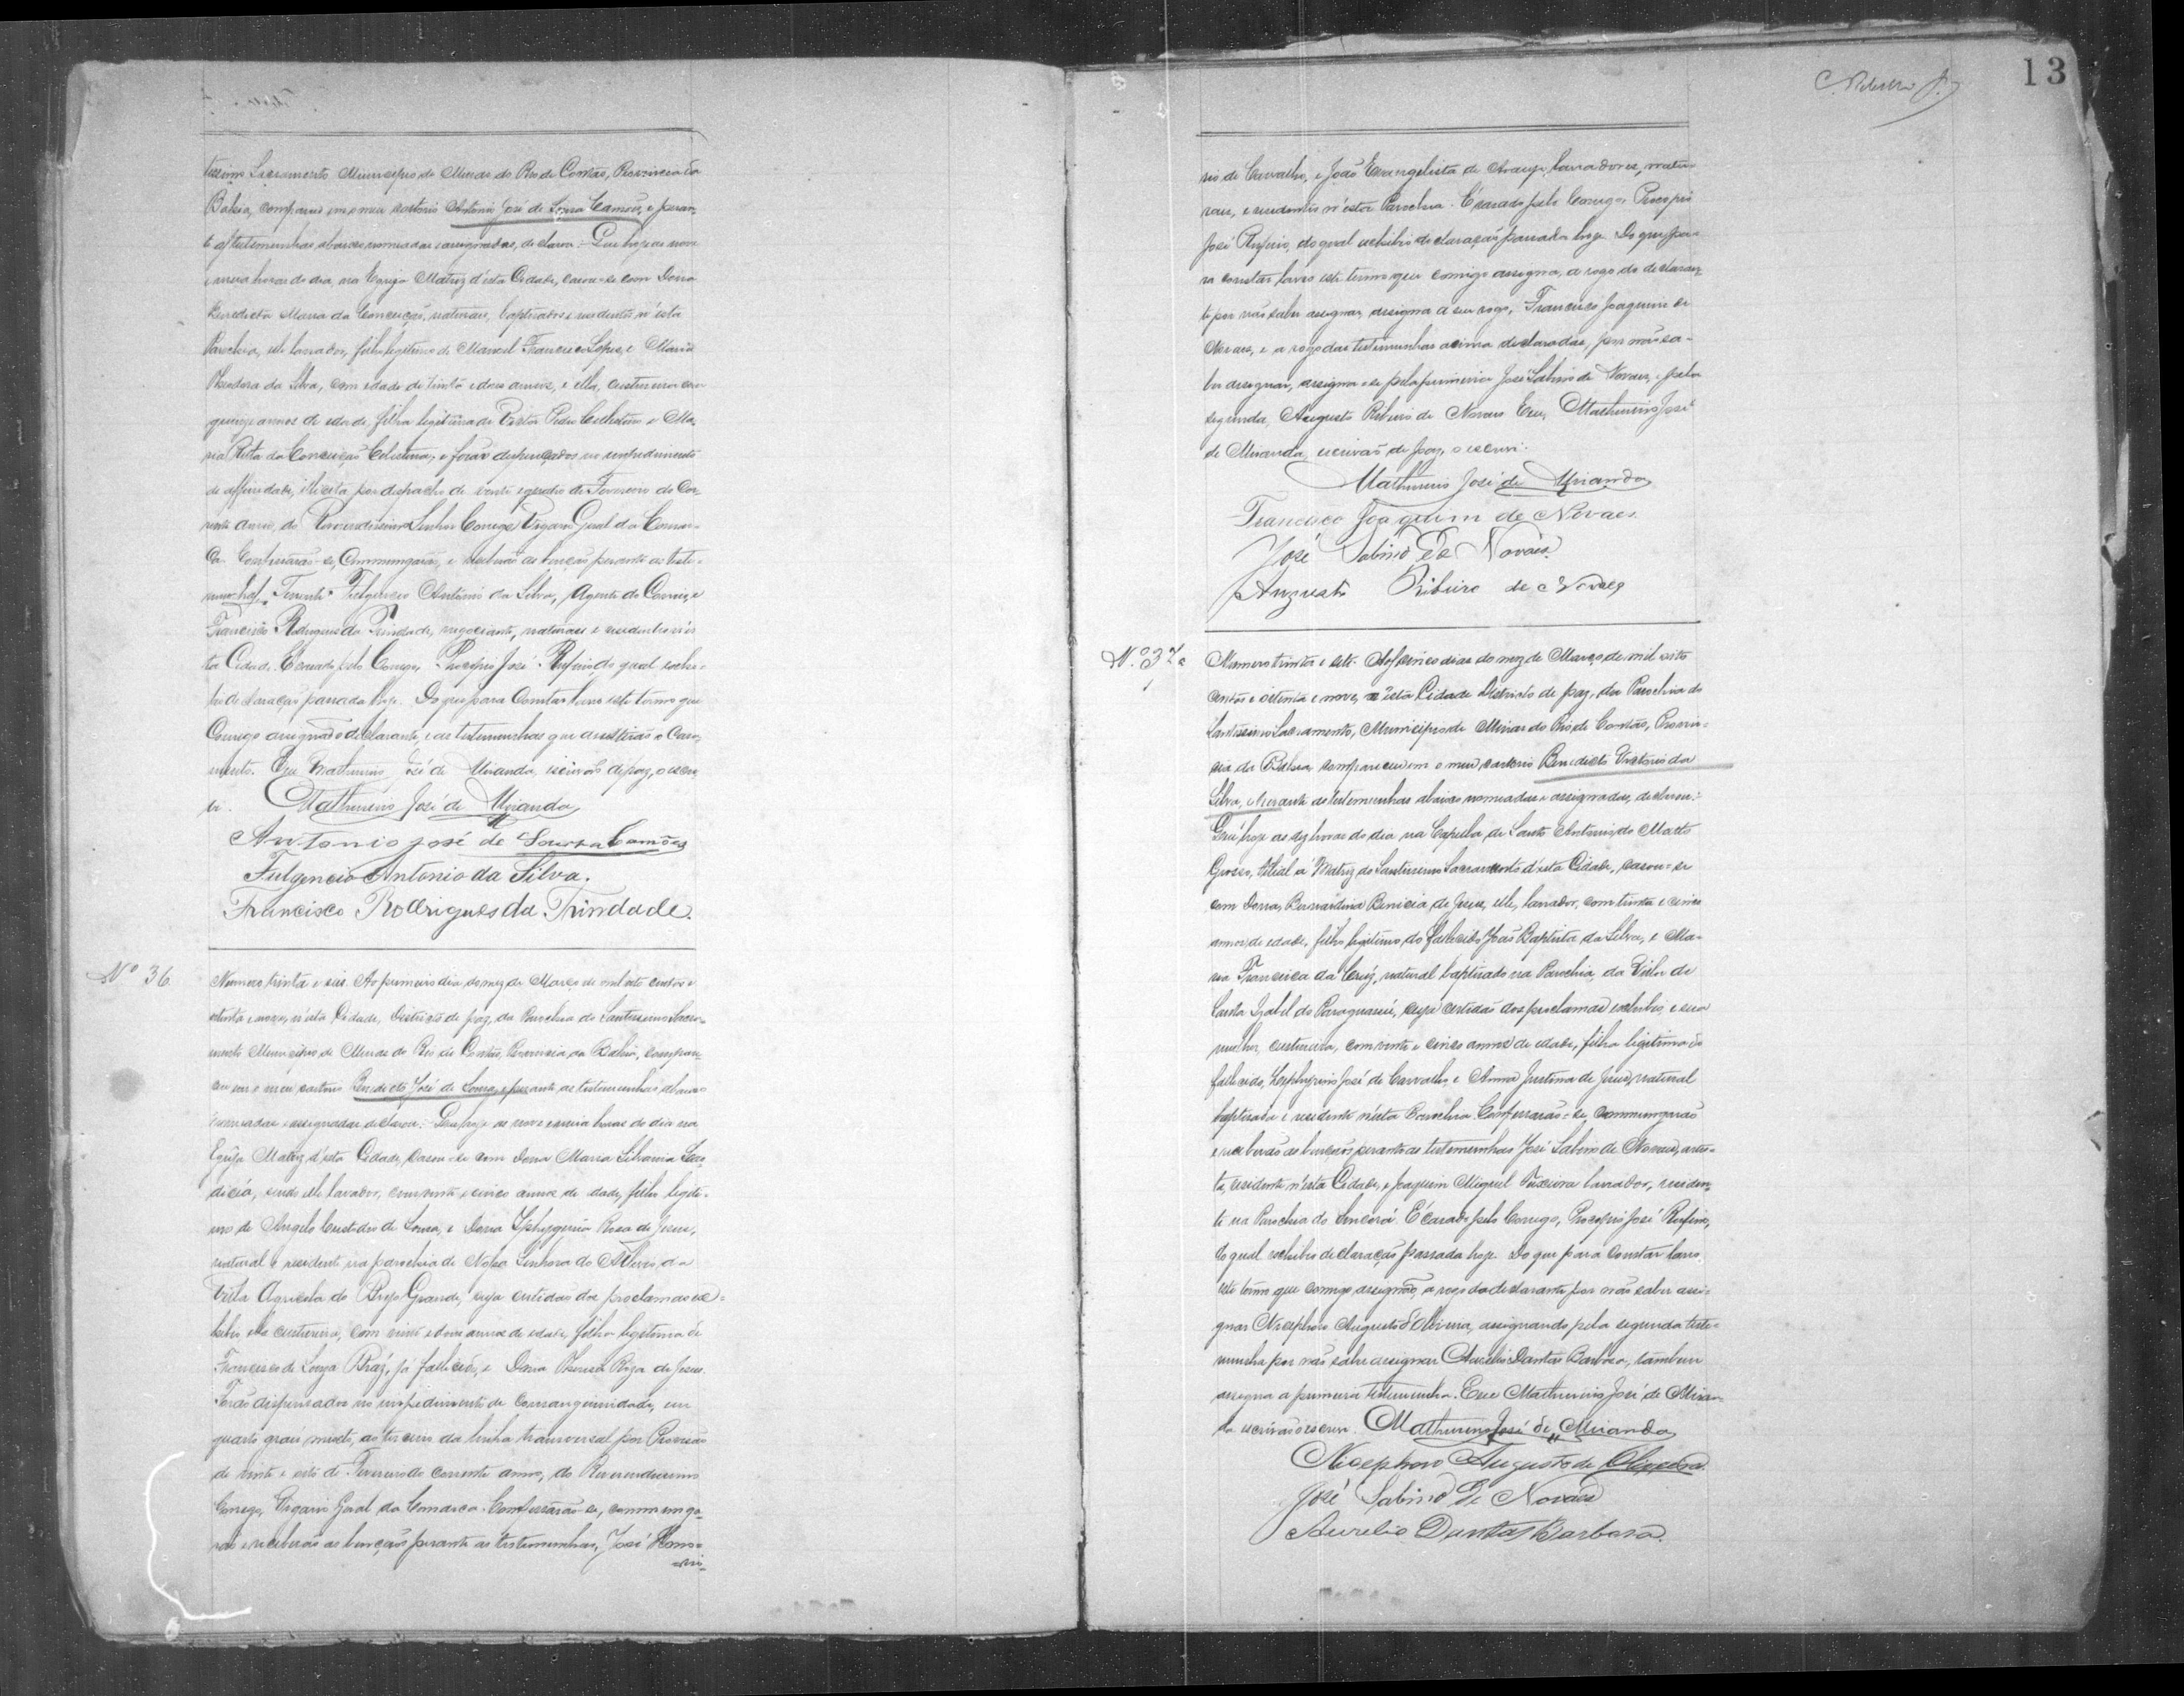 tissimo Sacramento Municipio de Minas do Rio de Contas, Provincia da
Bahia, compareu em o meu cartorio Antonio José de Souza Camões, e peran-
te as testemunhas abaixo nomeadas e assignadas, declarou: Que hoje as nove
e meia horas do dia, na Egreja Matriz d'esta Cidade, casou-se com Dona
Benedicta Maria da Conceição, naturaes, baptisados e residentes n'esta
Parochia, elle lavrador, filho legitimo de Manoel Francisco Lopes, e Maria
Theodora da Silva, com edade de trinta e dous annos, e ella, custureira com
quinze annos de edade, filha legitima de Victor Pedro Celestino e Ma-
ria Rita da Conceição Celestina; e forão dispensados no impedimento
de affinidade, illicita por despacho de vinte e quatro de Fevereiro do Cor-
rente anno, do Reverendissimo Senhor Conego Vigario Geral da Comar-
ca. Confessarão-se, Commungarão, e receberão as bençãos perante as teste-
munhas, Tenente Fulgencio Antonio da Silva, Agente do Correio, e
Francisco Rodrigues da Trindade, negociante, naturaes e residentes n'es
ta Cidade. E casado pelo Conego, Procopio José Rufino, do qual exhi-
bio declaração passada hoje. Do que para Constar lavro este termo que
Comigo assignão o declarante, e as testemunhas que assistirão o Casa-
mento. Eu Mathurino José de Miranda, escrivão de paz, o escre
vi. Mathurino José de Miranda
Antonio José de Souza Camões
Fulgencio Antonio da Silva.
Francisco Rodrigues da Trindade.
Nº 36
Numero trinta e seis. Ao primeiro dia do mez de Março de mil oito centos e
oitenta e nove, n'esta Cidade, Districto de paz, da Parochia do Santissimo Sacra-
mento Municipio de Minas do Rio de Contas, Provincia da Bahia, compare-
ceu em o meu cartorio Benedicto José de Souza, e perante as testemunhas abaixo
nomeadas e assignadas declarou: Que hoje as nove e meia horas do dia na
Egreja Matriz d'esta Cidade, casou-se com Dona Maria Silvana
sendo elle lavrador, com vinte e cinco annos de idade, filho legiti-
mo de Angelo Custodio de Souza, e Dona Iphygenia Rosa de Jesus,
natural e residente na parochia de Nossa Senhora do Allivio, da
Villa Agricola do Brejo Grande, cuja certidão dos proclamas ex-
hibiu ella custureira, com vinte e dous annos de edade, filha legitima de
Francisco de Souza Braz, já fallecido, e Dona Thereza Roza de Jesus.
Forão dispensados no impedimento de Consanguinidade, em
quarto grau mixto, ao terceiro da linha transversal por Provisão
de vinte e oito de Fevereiro do corrente anno, do Reverendissimo
Conego, Vigario Geral da Comarca. Confessarão-se, commungа-
rão e receberão as bençãos perante as testemunhas, José Hono-
rio
C. Rebello J.
13
rio de Carvalho, e João Evangelista de Araujo, lavradores, natu-
raes, e residentes n'esta Parochia. É casado pelo Conego, Procopio
José Rufino, do qual exhibio declaração passada hoje. Do que pa-
ra constar lavro este termo que comigo assigna, a rogo do declaran-
te por não saber assignar, assigna a seu rogo, Francisco Joaquim de
Novaes, e a rogo das testemunhas acima declaradas, por não sa-
ber assignar, assigna-se pela primeira José Sabino de Novaes, e pela
segunda, Augusto Ribeiro de Novaes Eu, Mathurino José
de Miranda, escrivão de paz, o escrevi.
Mathurino José de Miranda
Francisco Joaquim de Novaes.
José Sabino De Novaes.
Augusto Ribeiro de Novaes
N.º 37.
Numero trinta e sete. Aos cinco dias do mez de Março de mil oito
centos e oitenta e nove, n'esta Cidade Districto de paz, da Parochia do
Santissimo Sacramento, Municipio de Minas do Rio de Contas, Provin-
cia da Bahia, compareceu em o meu cartorio Benedicto Victorio da
Silva, e perante as testemunhas abaixo nomeadas e assignadas, declarou:
Que hoje as dez horas do dia na Capella de Santo Antonio do Matto
Grosso, filial a Matriz do Santissimo Sacramento d'esta Cidade, casou-se
com Dona, Bernardina Benicia de Jesus, elle, lavrador, com trinta e cinco
annos de edade, filho legitimo do fallecido João Baptista da Silva, e Ma-
ria Francisca da Cruz, natural baptisado na Parochia, da Villa de
Santa Izabel do Paraguassú, cuja certidão dos proclamas exhibio, e sua
mulher, custureira, com vinte e cinco annos de edade, filha legitima do
fallecido, Zephyrino José de Carvalho, e Anna Justina de Jesus, natural
baptisada e residente n'esta Parochia. Confessarão-se, commungarão
e receberão as bençãos perante as testemunhas José Sabino de Novaes, artis-
ta, residente n'esta Cidade, e Joaquim Miguel Teixeira lavrador, residen-
te na Parochia do Sincorá. É casado pelo Conego, Procopio José Rufino,
do qual exhibio declaração passada hoje. Do que para Constar lavro
este termo que comigo assignão, a rogo do declarante por não saber assi-
gnar Nicephoro Augusto d'Oliveira, assignando pela segunda teste-
munha por não saber assignar Aurelio Dantas Barbosa, tambem
assigna a primeira testemunha. Eu Mathurino José de Miran-
da escrivão o escrevi. Mathurino José de Miranda
Nicephoro Augusto de Oliveira.
José Sabino De Novaes
Aurelio Dantas Barbosa.